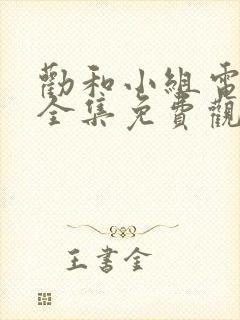 勸和小組電
全集免費觀
王書金